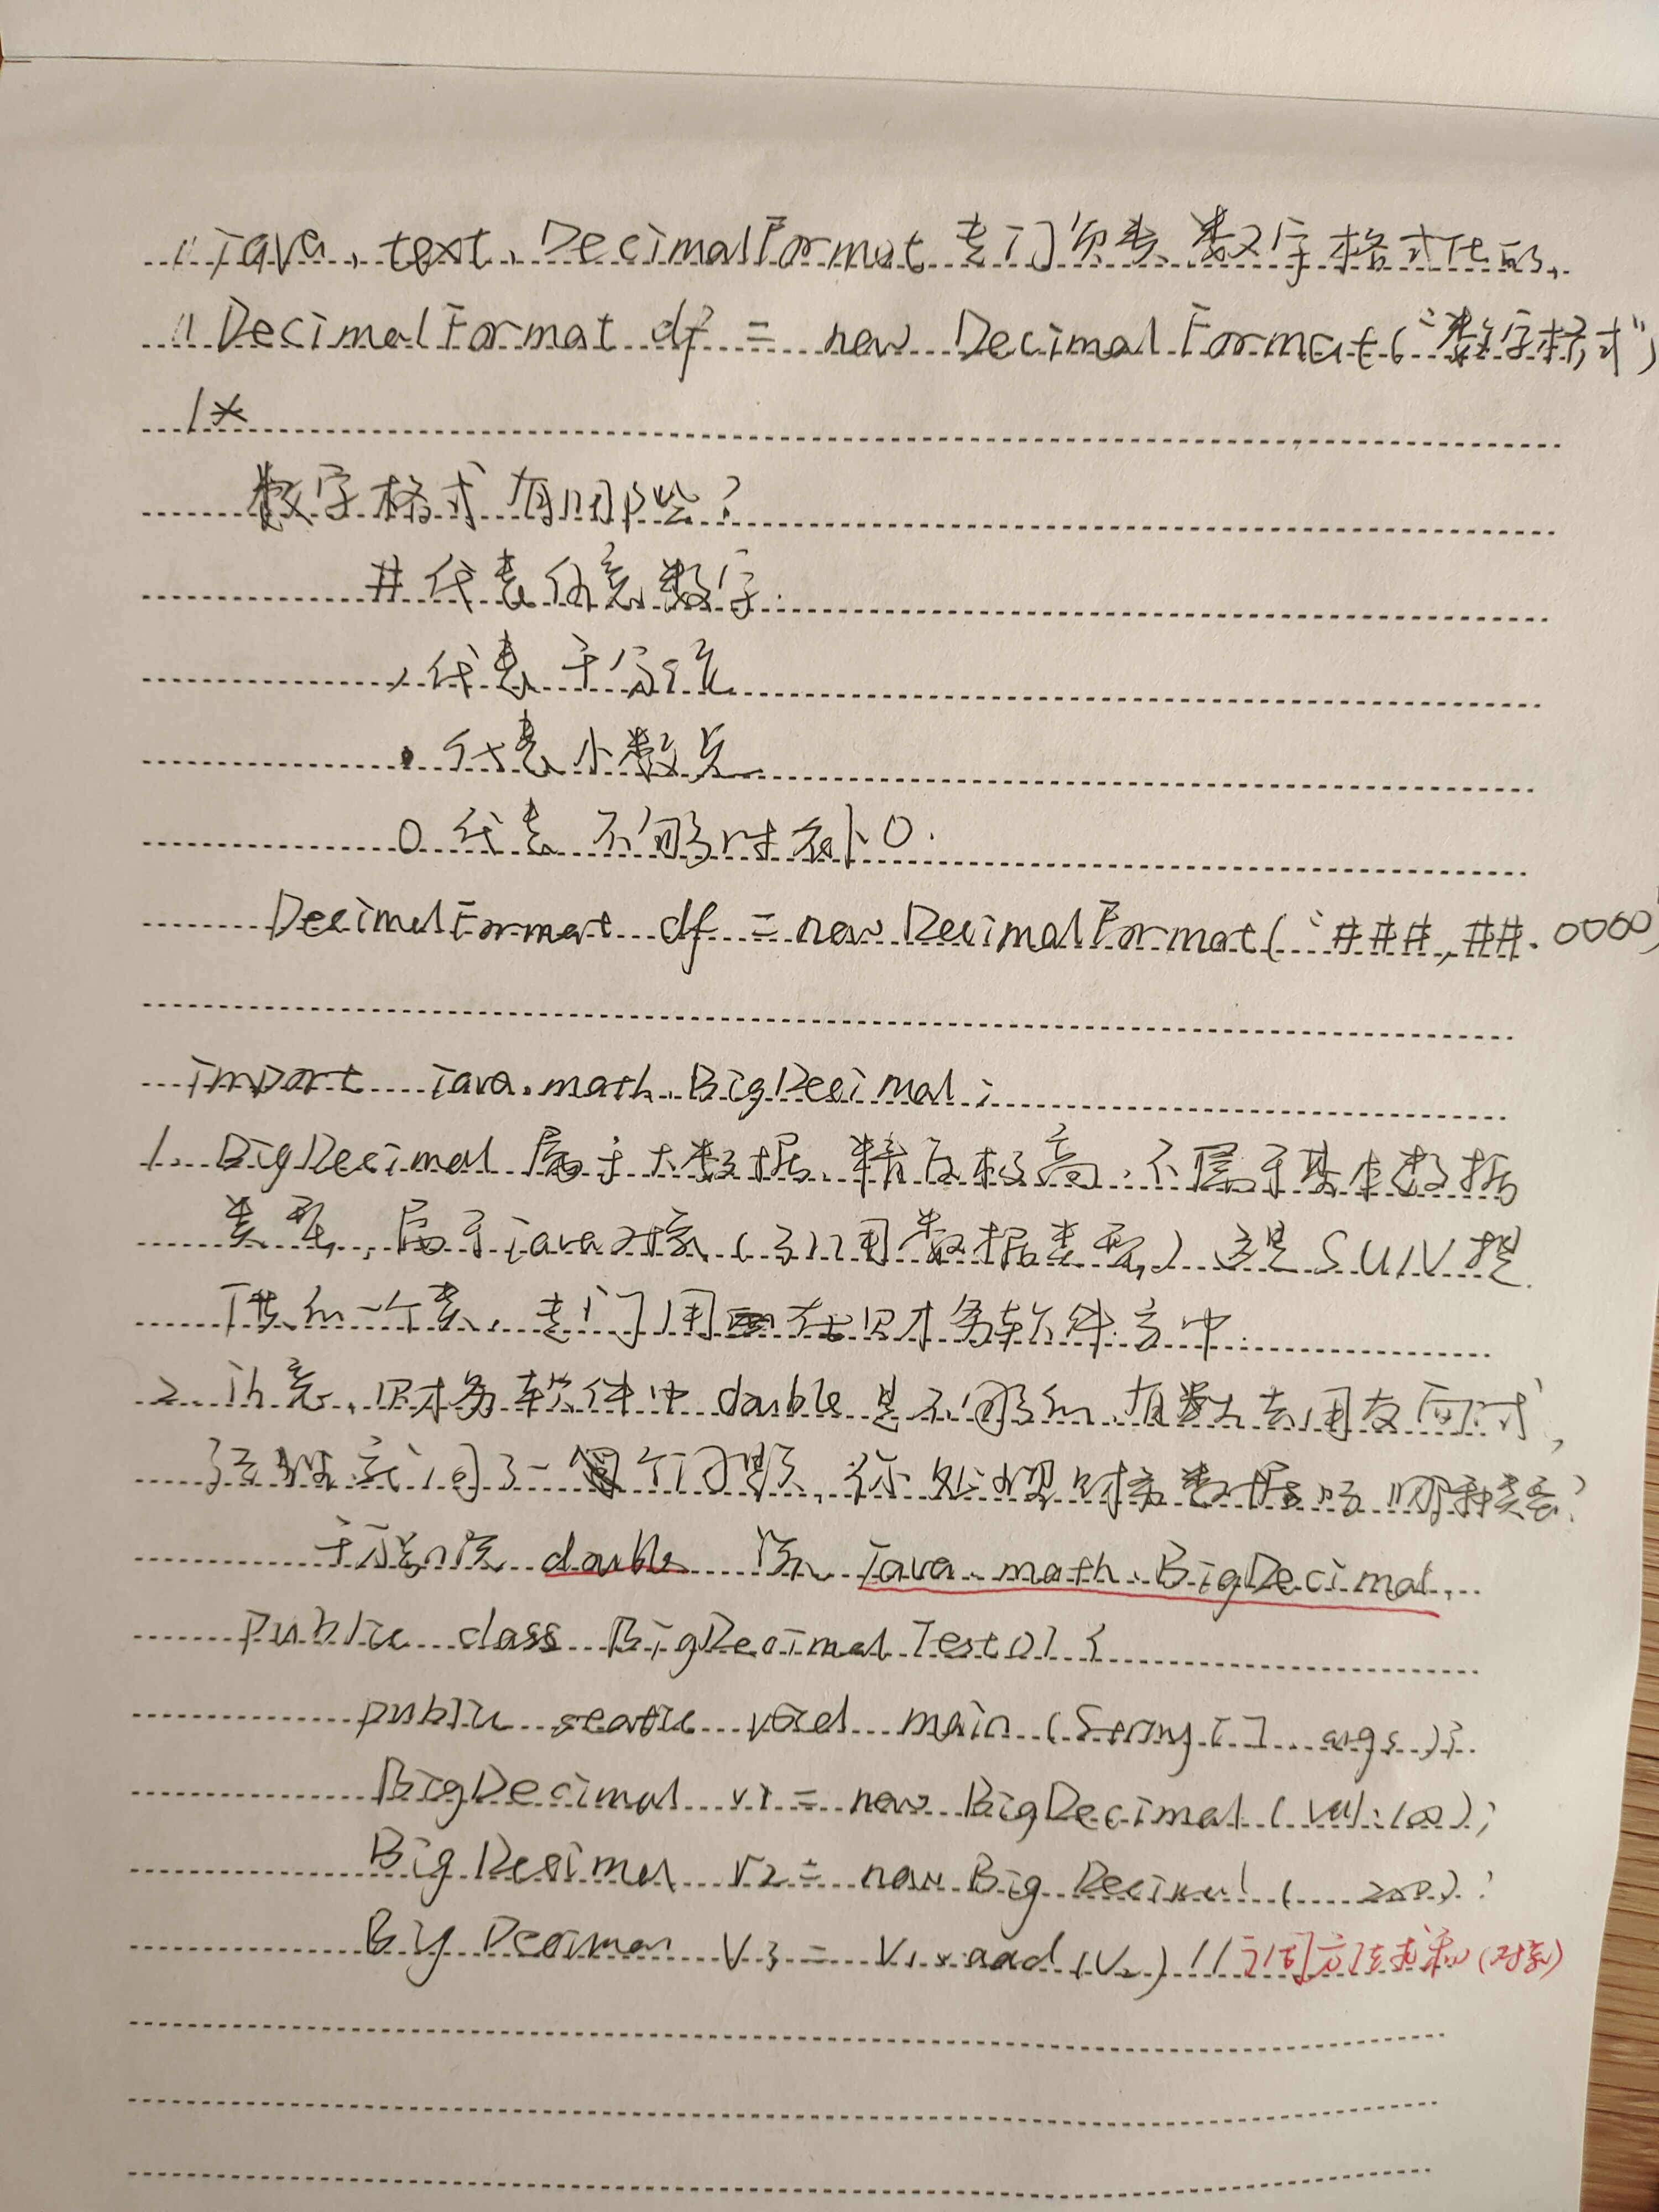 // java.text.DecimalFormat 专门负责数字格式化的.
// DecimalFormat df = new DecimalFormat("数字格式")
/*
数字格式有哪些?
# 代表任意数字.
, 代表千分位
. 代表小数点
0 代表不够时补0.
DecimalFormat df = new DecimalFormat("###,##.0000"
import java.math.BigDecimal;
1. BigDecimal 属于大数据、精度极高,不属于基本数据
类型,属于java对象(引用数据类型)这是SUN提
供的一个类,专门用在财务软件方中.
2. 注意,财务软件中double是不够的,有 去用友面试,
经理 问了一个问题,你处理财务数据 哪种类型?
千万别说 double 说 java.math.BigDecimal.
public class BigDecimalTest01 {
public static void main (String [] args){
BigDecimal v1 = new BigDecimal ( val: 100);
BigDecimal v2 = new BigDecimal ( 200);
BigDecimal v3 = v1.add(v2) // 调方法求和(对象)